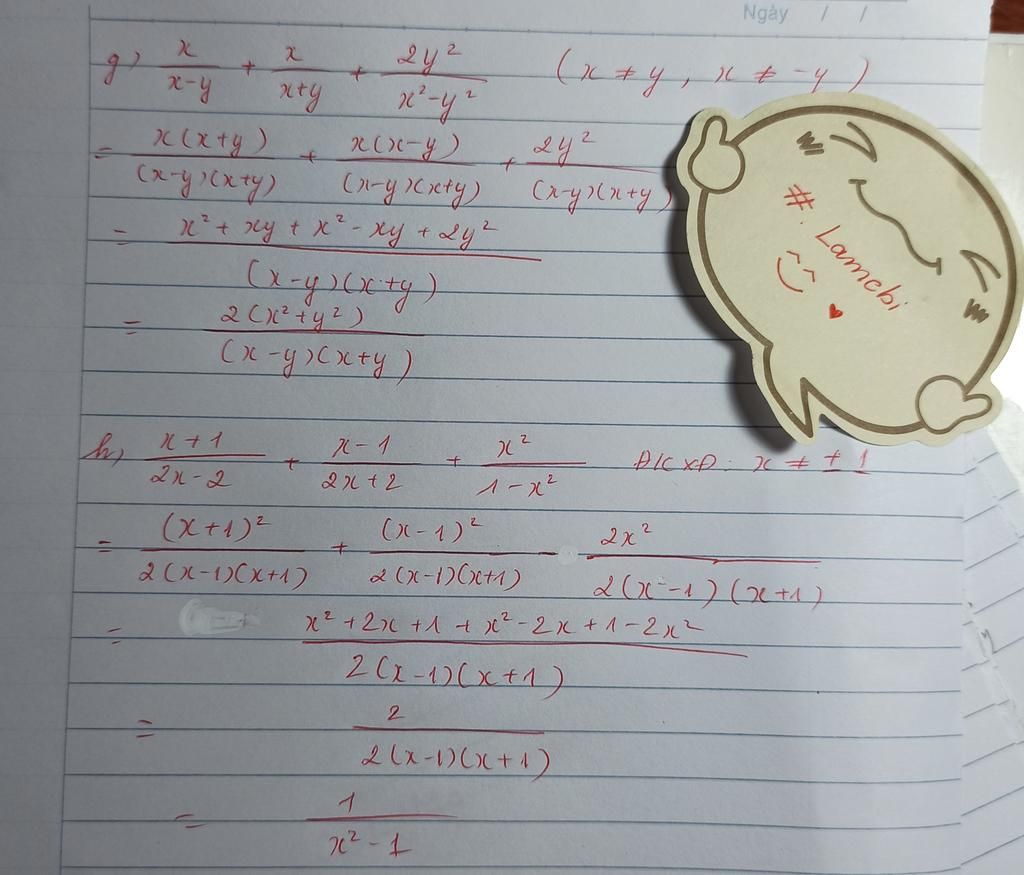 Ngày / /
g) x/(x-y) + x/(x+y) + 2y²/(x²-y²) (x ≠ y, x ≠ -y)
= x(x+y)/((x-y)(x+y)) + x(x-y)/((x-y)(x+y)) + 2y²/((x-y)(x+y))
= (x² + xy + x² - xy + 2y²)/((x-y)(x+y))
= 2(x²+y²)/((x-y)(x+y))
#. Lamchi
h) (x+1)/(2x-2) + (x-1)/(2x+2) + x²/(1-x²) ĐKXĐ: x ≠ ±1
= (x+1)²/(2(x-1)(x+1)) + (x-1)²/(2(x-1)(x+1)) - 2x²/(2(x-1)(x+1))
= (x²+2x+1+x²-2x+1-2x²)/(2(x-1)(x+1))
= 2/(2(x-1)(x+1))
= 1/(x²-1)